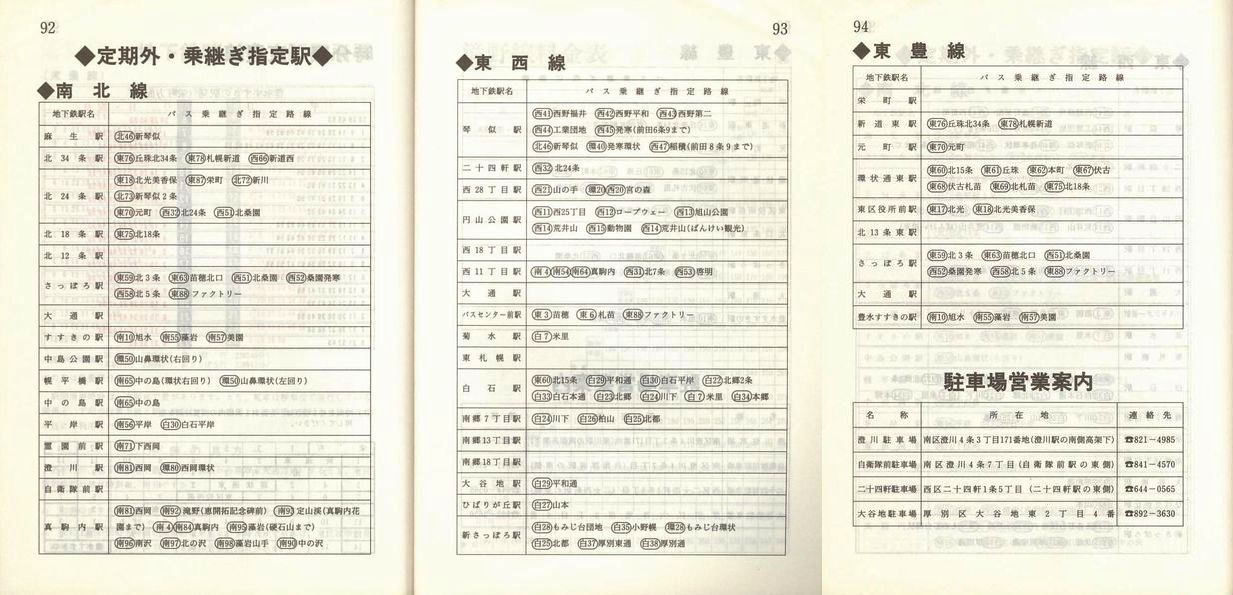 92
◆定期外・乗継ぎ指定駅◆
◆南北線
地下鉄駅名 バス乗継ぎ指定路線
麻生駅 北46新琴似
北34条駅 東76丘珠北34条 東78札幌新道 西66新道西
北24条駅 東18北光美香保 東87栄町 北72新川
北73新琴似2条
東70元町 西32北24条 西51北桑園
北18条駅 東75北18条
北12条駅
さっぽろ駅 東59北3条 東63苗穂北口 西51北桑園 西52桑園発寒
西58北5条 東88ファクトリー
大通駅
すすきの駅 南10旭水 南55藻岩 南57美園
中島公園駅 環50山鼻環状(右回り)
幌平橋駅 南65中の島(環状右回り) 環50山鼻環状(左回り)
中の島駅 南65中の島
平岸駅 南56平岸 白30白石平岸
霊園前駅 南71下西岡
澄川駅 南81西岡 環80西岡環状
自衛隊前駅
真駒内駅 南81西岡 南92滝野(恵開拓記念碑前) 南93定山渓(真駒内花
園まで) 南4南84真駒内 南95藻岩(硬石山まで)
南96南沢 南97北の沢 南98藻岩山手 南90中の沢
93
◆東西線
地下鉄駅名 バス乗継ぎ指定路線
琴似駅 西41西野福井 西42西野平和 西43西野第二
西44工業団地 西45発寒(前田6条9まで)
北46新琴似 環40発寒環状 西47稲積(前田8条9まで)
二十四軒駅 西32北24条
西28丁目駅 西21山の手 環20西20宮の森
円山公園駅 西11西25丁目 西12ロープウェー 西13旭山公園
西14荒井山 西15動物園 西14荒井山(ばんけい観光)
西18丁目駅
西11丁目駅 南4南54南64真駒内 西31北7条 西53啓明
大通駅
バスセンター前駅 東3苗穂 東6札苗 東88ファクトリー
菊水駅 白7米里
東札幌駅
白石駅 東60北15条 白29平和通 白30白石平岸 白22北郷2条
白33白石本通 白23北郷 白24川下 白7米里 白34本郷
南郷7丁目駅 白24川下 白26柏山 白25北都
南郷13丁目駅
南郷18丁目駅
大谷地駅 白29平和通
ひばりが丘駅 白27山本
新さっぽろ駅 白28もみじ台団地 白35小野幌 環28もみじ台環状
白25北都 白37厚別東通 白38厚別通
94
◆東豊線
地下鉄駅名 バス乗継ぎ指定路線
栄町駅
新道東駅 東76丘珠北34条 東78札幌新道
元町駅 東70元町
環状通東駅 東60北15条 東61丘珠 東62本町 東67伏古
東68伏古札苗 東69北札苗 東75北18条
東区役所前駅 東17北光 東18北光美香保
北13条東駅
さっぽろ駅 東59北3条 東63苗穂北口 西51北桑園
西52桑園発寒 西58北5条 東88ファクトリー
大通駅
豊水すすきの駅 南10旭水 南55藻岩 南57美園
駐車場営業案内
名称 所在地 連絡先
澄川駐車場 南区澄川4条3丁目171番地(澄川駅の南側高架下) ☎821-4985
自衛隊前駐車場 南区澄川4条7丁目(自衛隊前駅の東側) ☎841-4570
二十四軒駐車場 西区二十四軒1条5丁目(二十四軒駅の東側) ☎644-0565
大谷地駐車場 厚別区大谷地東2丁目4番 ☎892-3630